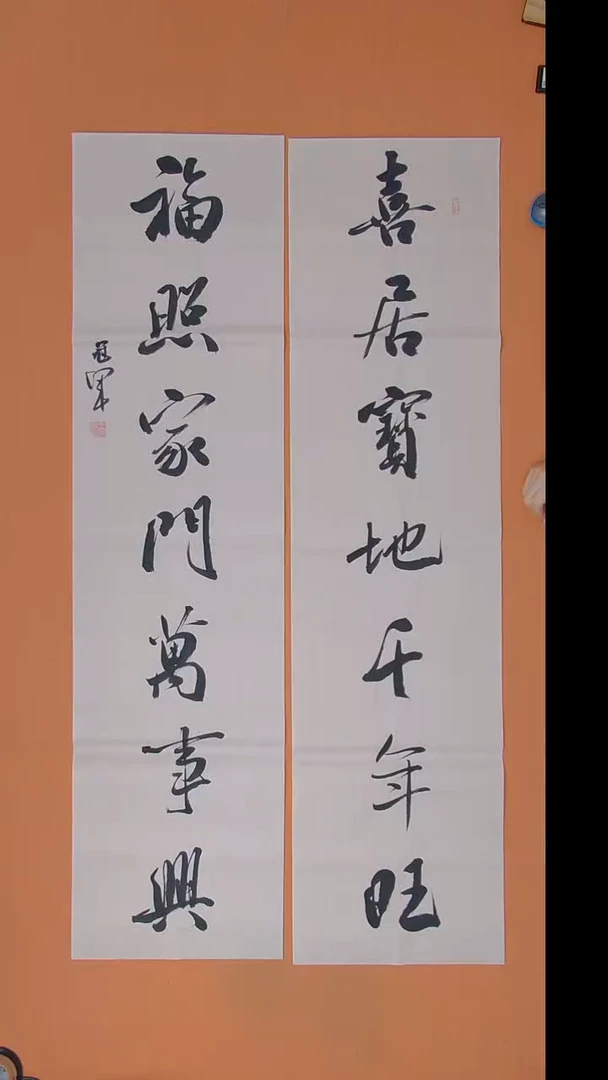 喜居寶地千年旺
福照家門萬事興
冠軍